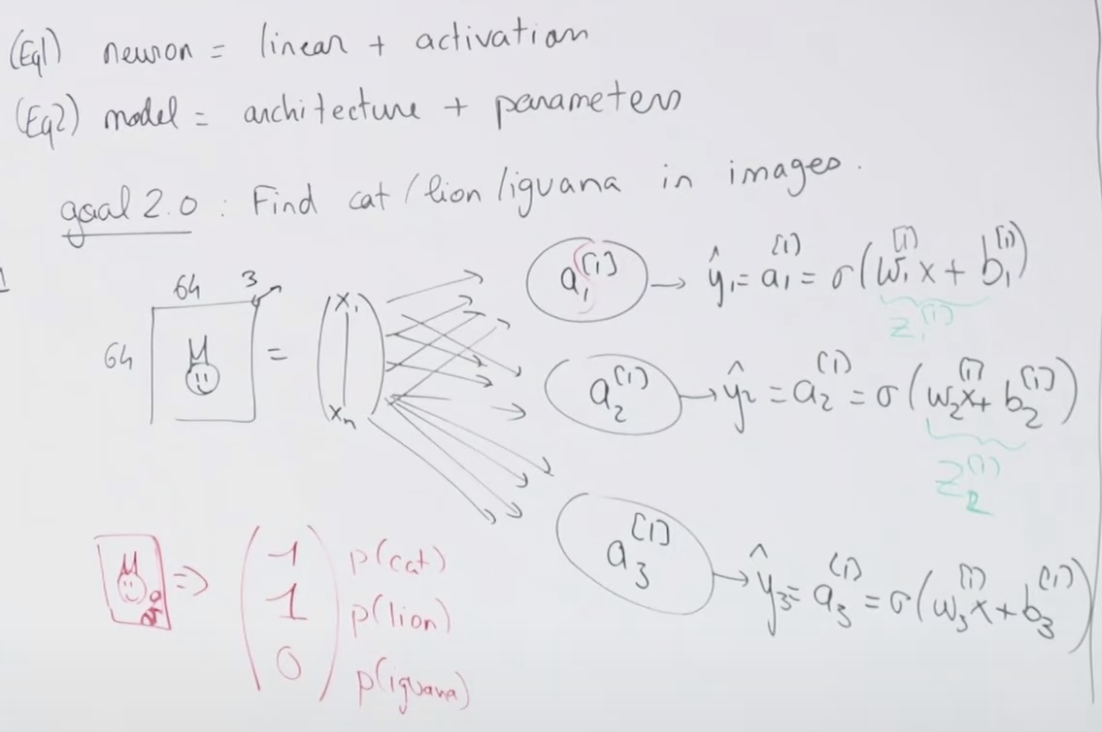 (Eq1) neuron = linear + activation
(Eq2) model = architecture + parameters
goal 2.0 : Find cat / lion / iguana in images.
64 3
64
=
x₁
xₙ
a₁^[1] → ŷ₁ = a₁^[1] = σ(w₁^[1] x + b₁^[1])
z₁^[1]
a₂^(1) → ŷ₂ = a₂^(1) = σ(w₂^[1] x + b₂^[1])
z₂^(1)
a₃^[1] → ŷ₃ = a₃^(1) = σ(w₃^[1] x + b₃^(1))
⇒
1 p(cat)
1 p(lion)
0 p(iguana)